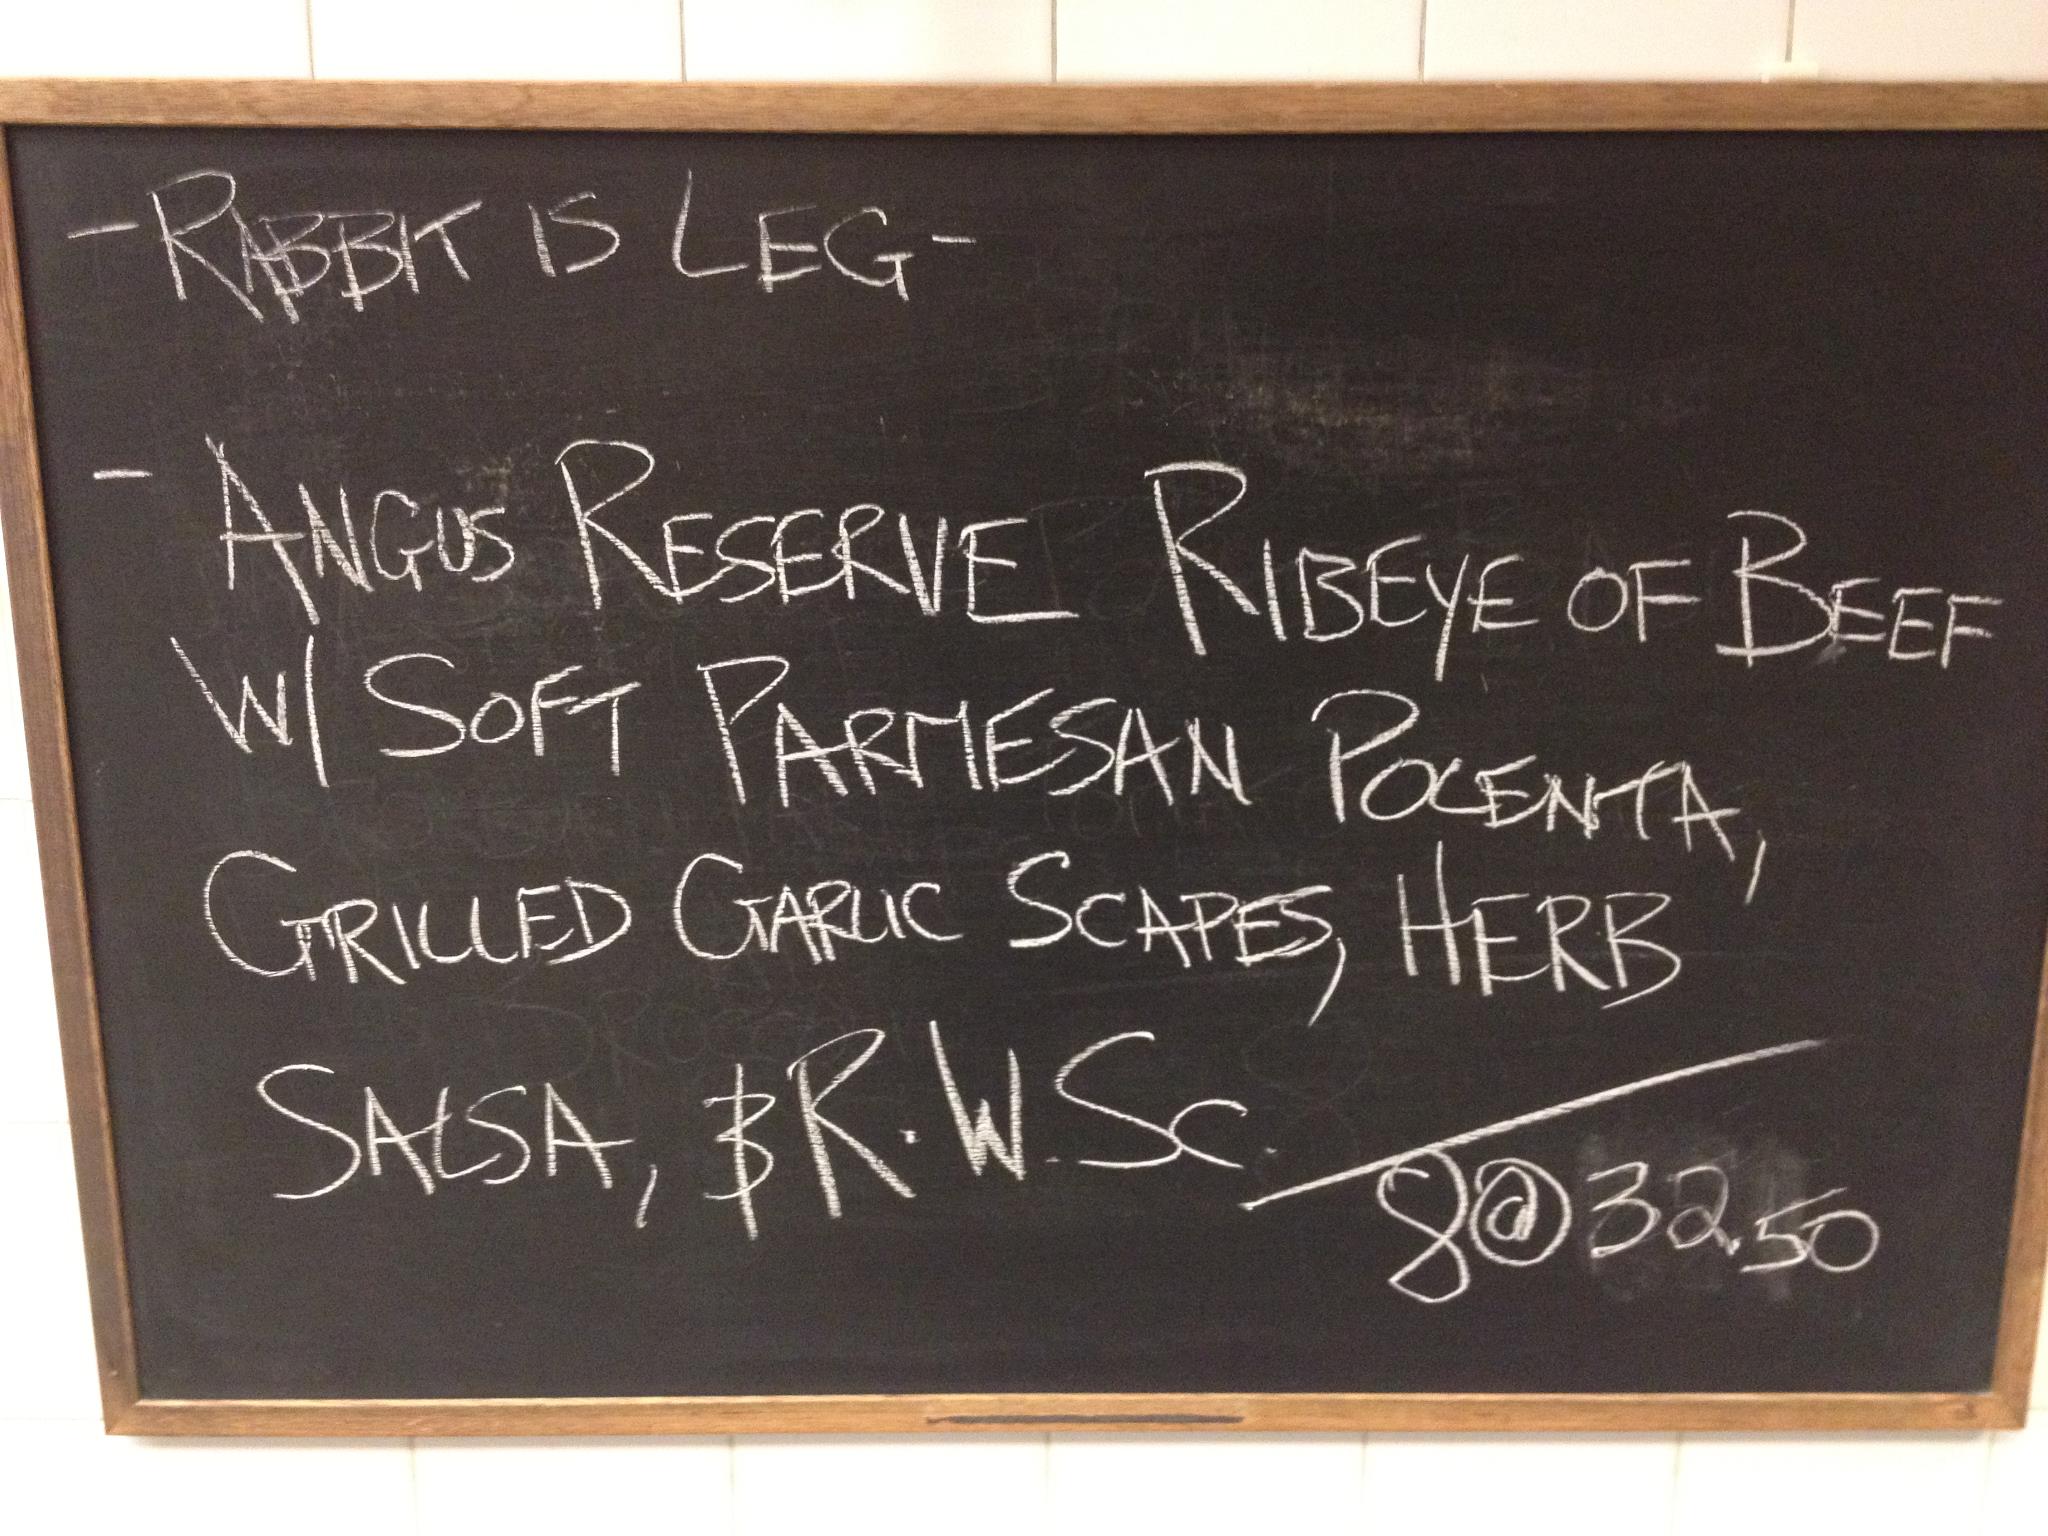 - RABBIT IS LEG -
- ANGUS RESERVE RIBEYE OF BEEF
W/ SOFT PARMESAN POLENTA,
GRILLED GARLIC SCAPES, HERB
SALSA, & R.W.SC.
8@32.50